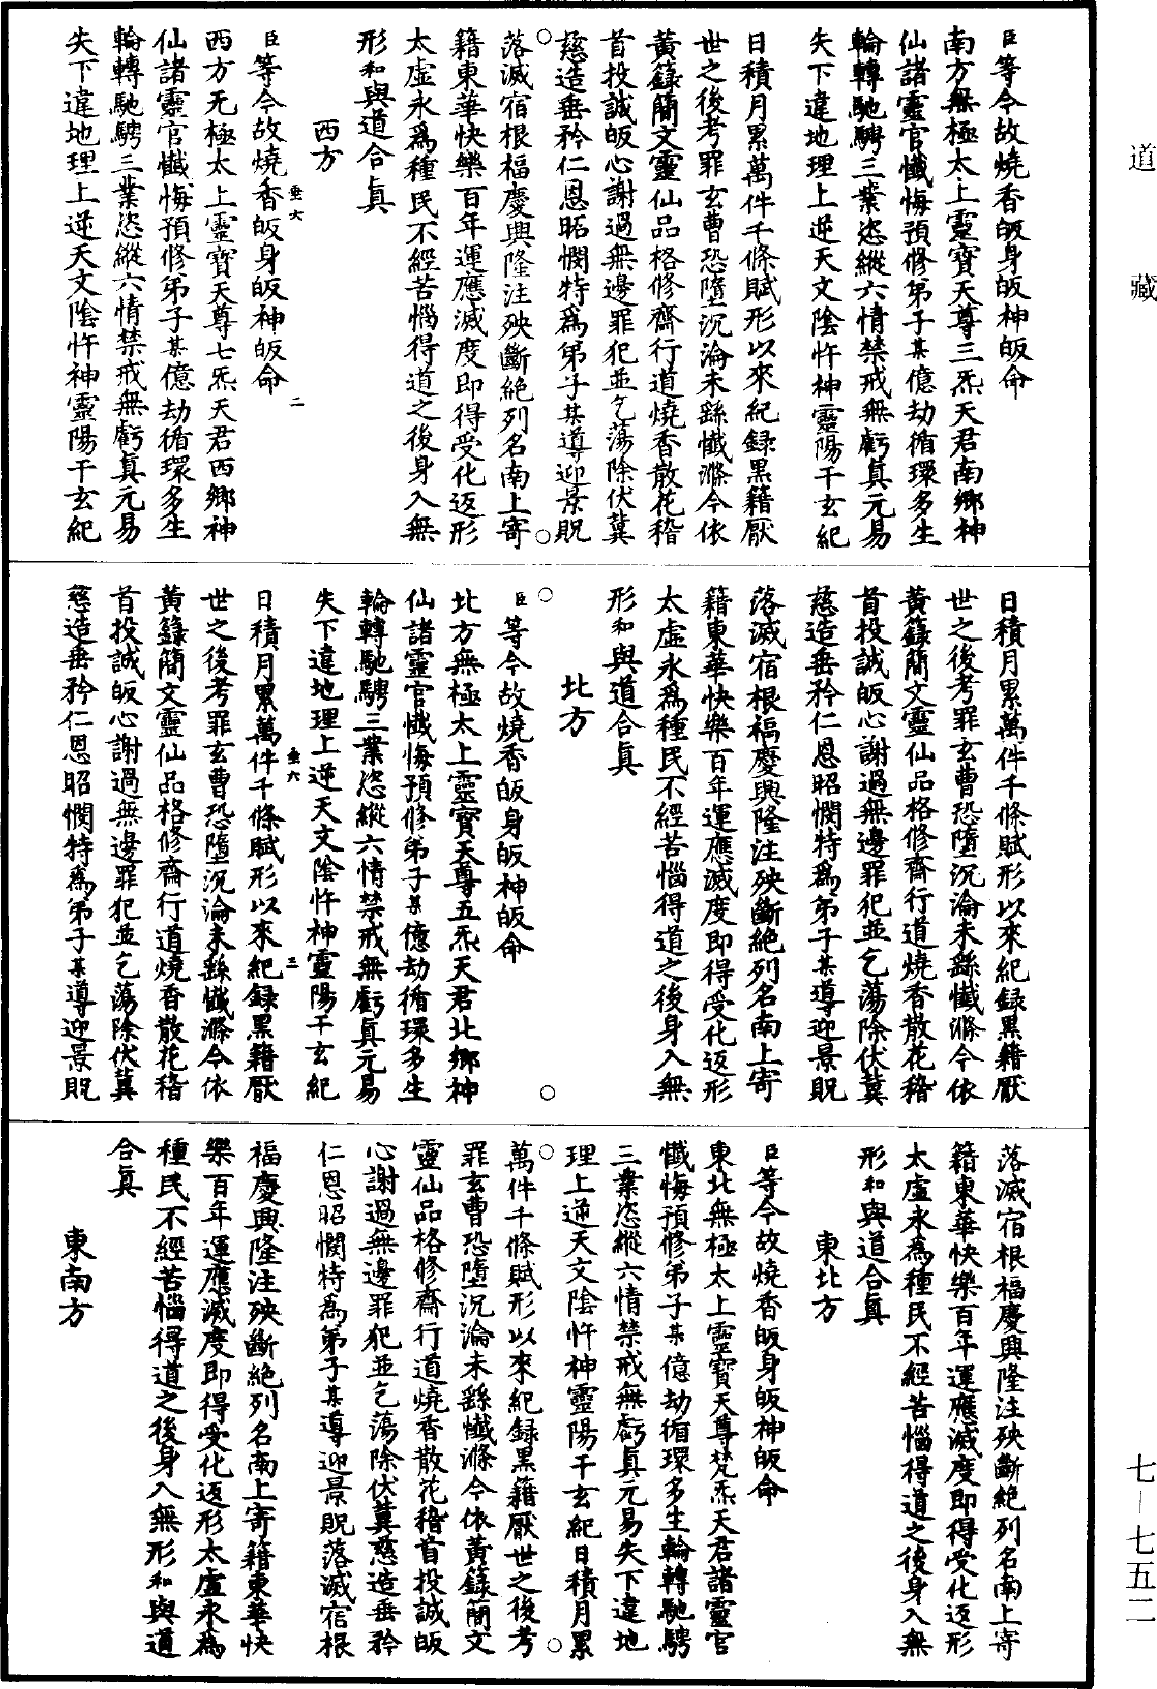 道藏
七—七五二
臣等今故燒香皈身皈神皈命
南方無極太上靈寶天尊三炁天君南鄉神
仙諸靈官懺悔預修弟子某億劫循環多生
輪轉馳騁三業恣縱六情禁戒無虧真元易
失下違地理上逆天文陰忤神靈陽干玄紀
日積月累萬件千條賦形以來紀録黑籍厭
世之後考罪玄曹恐墮沉淪未繇懺滌今依
黃籙簡文靈仙品格修齋行道燒香散花稽
首投誠皈心謝過無邊罪犯並乞蕩除伏冀
慈造垂矜仁恩昭憫特爲弟子某導迎景貺
落滅宿根福慶興隆注殃斷絕列名南上寄
籍東華快樂百年運應滅度即得受化返形
太虛永爲種民不經苦惱得道之後身入無
形和與道合真
西方
臣等今故燒香皈身皈神皈命
垂六 二
西方无極太上靈寶天尊七炁天君西鄉神
仙諸靈官懺悔預修弟子某億劫循環多生
輪轉馳騁三業恣縱六情禁戒無虧真元易
失下違地理上逆天文陰忤神靈陽干玄紀
日積月累萬件千條賦形以來紀録黑籍厭
世之後考罪玄曹恐墮沉淪未繇懺滌今依
黃籙簡文靈仙品格修齋行道燒香散花稽
首投誠皈心謝過無邊罪犯並乞蕩除伏冀
慈造垂矜仁恩昭憫特爲弟子某導迎景貺
落滅宿根福慶興隆注殃斷絕列名南上寄
籍東華快樂百年運應滅度即得受化返形
太虛永爲種民不經苦惱得道之後身入無
形和與道合真
北方
臣等今故燒香皈身皈神皈命
北方無極太上靈寶天尊五炁天君北鄉神
仙諸靈官懺悔預修弟子某億劫循環多生
輪轉馳騁三業恣縱六情禁戒無虧真元易
失下違地理上逆天文陰忤神靈陽干玄紀
垂六 三
日積月累萬件千條賦形以來紀録黑籍厭
世之後考罪玄曹恐墮沉淪未繇懺滌今依
黃籙簡文靈仙品格修齋行道燒香散花稽
首投誠皈心謝過無邊罪犯並乞蕩除伏冀
慈造垂矜仁恩昭憫特爲弟子某導迎景貺
落滅宿根福慶興隆注殃斷絕列名南上寄
籍東華快樂百年運應滅度即得受化返形
太虛永爲種民不經苦惱得道之後身入無
形和與道合真
東北方
臣等今故燒香皈身皈神皈命
東北無極太上靈寶天尊梵炁天君諸靈官
懺悔預修弟子某億劫循環多生輪轉馳騁
三業恣縱六情禁戒無虧真元易失下違地
理上逆天文陰忤神靈陽干玄紀日積月累
萬件千條賦形以來紀録黑籍厭世之後考
罪玄曹恐墮沉淪未繇懺滌今依黃籙簡文
靈仙品格修齋行道燒香散花稽首投誠皈
心謝過無邊罪犯並乞蕩除伏冀慈造垂矜
仁恩昭憫特爲弟子某導迎景貺落滅宿根
福慶興隆注殃斷絕列名南上寄籍東華快
樂百年運應滅度即得受化返形太虛永爲
種民不經苦惱得道之後身入無形和與道
合真
東南方